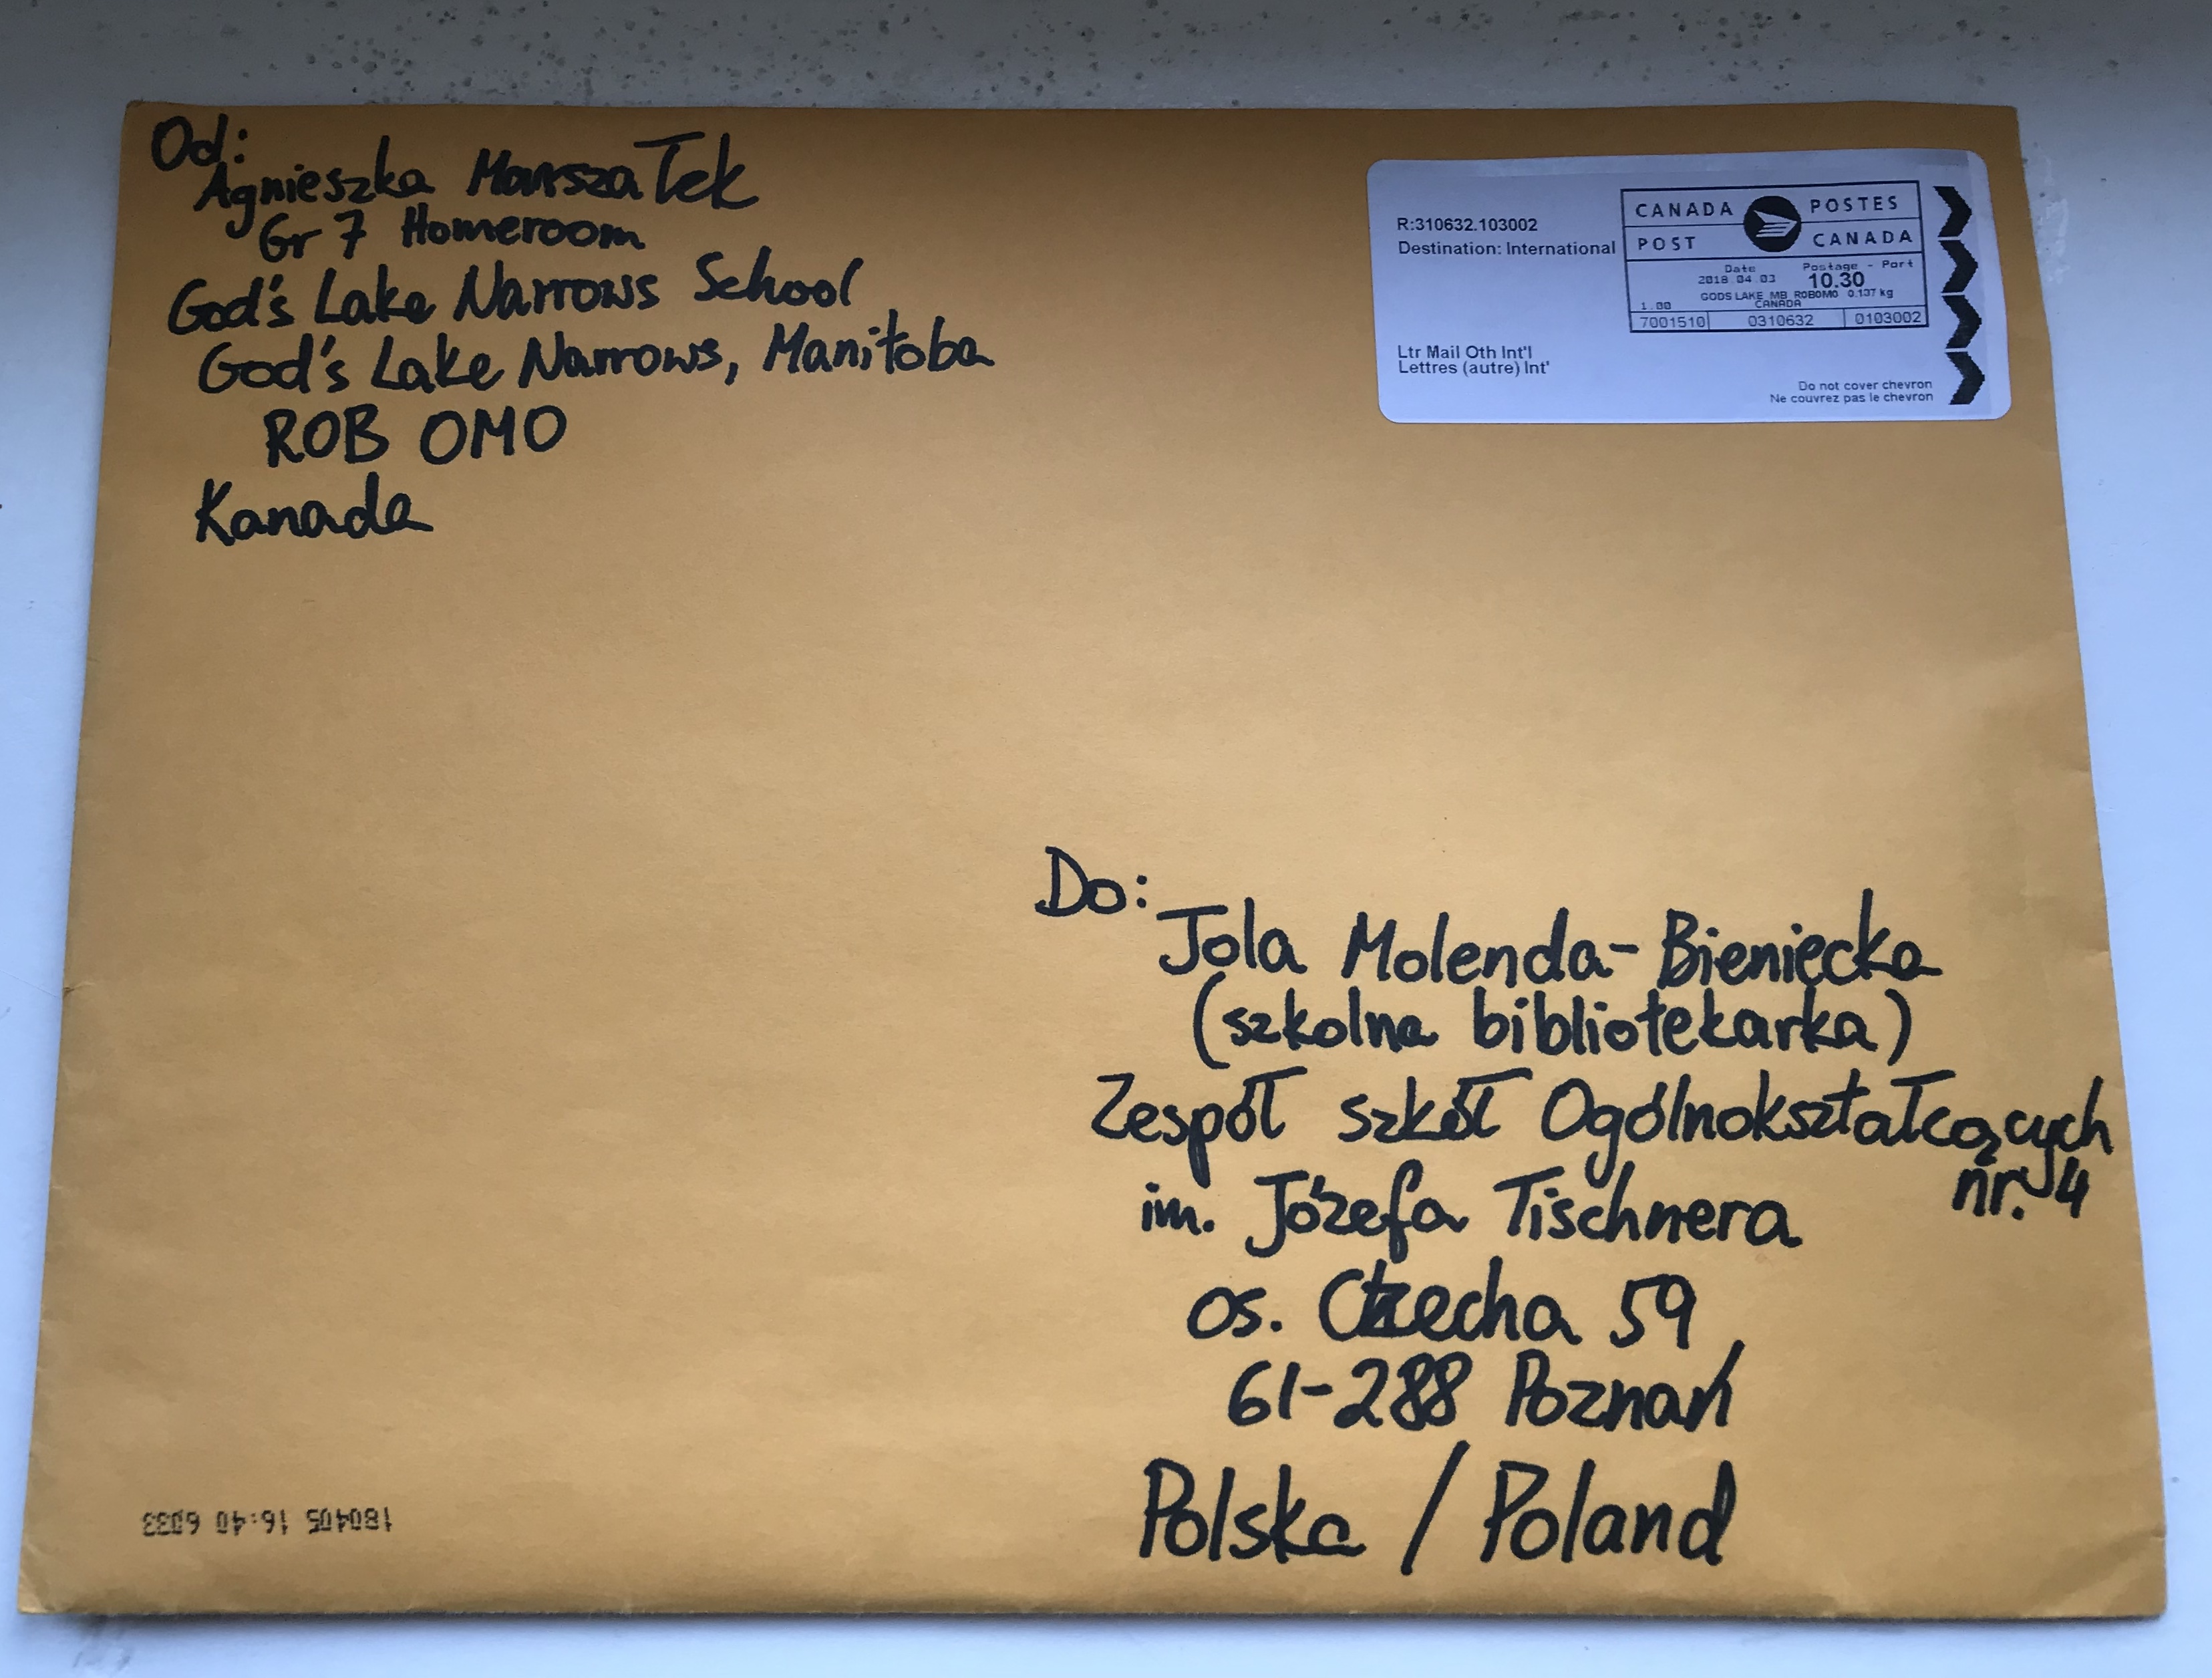 Od:
Agnieszka Marszałek
Gr 7 Homeroom
God's Lake Narrows School
God's Lake Narrows, Manitoba
ROB OMO
Kanada
R:310632.103002
Destination: International
CANADA POSTES
POST CANADA
Date Postage - Port
2018.04.03 10.30
GODS LAKE MB ROB0M0 0.137 kg
1.00 CANADA
7001510 0310632 0103002
Ltr Mail Oth Int'l
Lettres (autre) Int'
Do not cover chevron
Ne couvrez pas le chevron
Do:
Jola Molenda-Bieniecka
(szkolna bibliotekarka)
Zespół szkół Ogólnokształcących
nr. 4
im. Józefa Tischnera
os. Czecha 59
61-288 Poznań
Polska / Poland
180405 16:40 6033